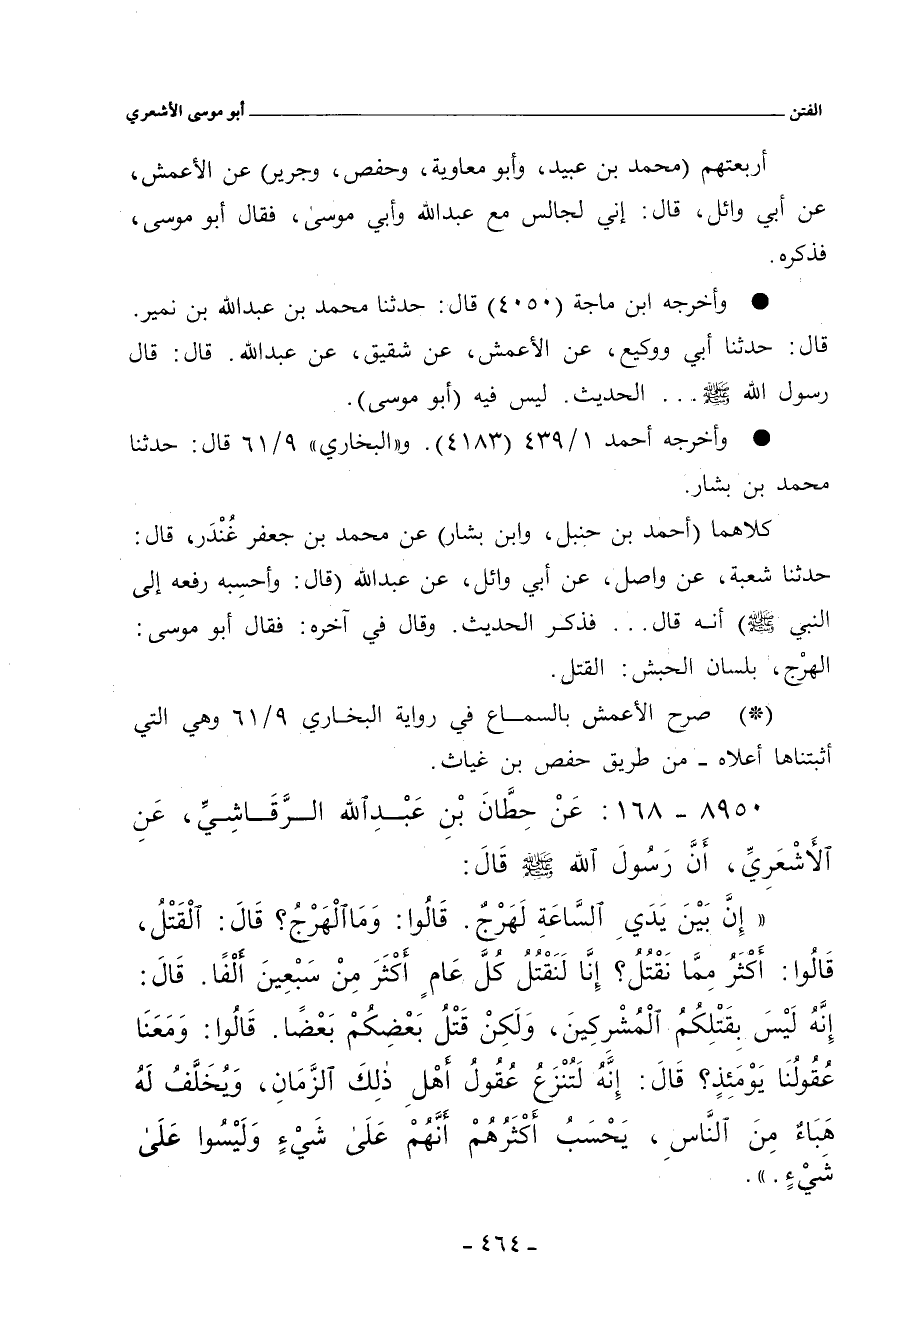 الفتن ـــــــــ أبو موسى الأشعري
أربعتهم (محمد بن عبيد، وأبو معاوية، وحفص، وجرير) عن الأعمش،
عن أبي وائل، قال: إني لجالس مع عبدالله وأبي موسىٰ، فقال أبو موسى،
فذكره.
● وأخرجه ابن ماجة (٤٠٥٠) قال: حدثنا محمد بن عبدالله بن نمير.
قال: حدثنا أبي ووكيع، عن الأعمش، عن شقيق، عن عبدالله. قال: قال
رسول الله ﷺ... الحديث. ليس فيه (أبو موسى).
● وأخرجه أحمد ٤٣٩/١ (٤١٨٣). و«البخاري» ٦١/٩ قال: حدثنا
محمد بن بشار.
كلاهما (أحمد بن حنبل، وابن بشار) عن محمد بن جعفر غُنْدَر، قال:
حدثنا شعبة، عن واصل، عن أبي وائل، عن عبدالله (قال: وأحسبه رفعه إلى
النبي ﷺ) أنه قال... فذكر الحديث. وقال في آخره: فقال أبو موسى:
الهرْج، بلسان الحبش: القتل.
(*) صرح الأعمش بالسماع في رواية البخاري ٦١/٩ وهي التي
أثبتناها أعلاه ـ من طريق حفص بن غياث.
٨٩٥٠ ـ ١٦٨: عَنْ حِطَّانَ بْنِ عَبْدِٱلله الرَّقَاشِيِّ، عَنِ
ٱلْأَشْعَرِيِّ، أَنَّ رَسُولَ ٱلله ﷺ قَالَ:
« إِنَّ بَيْنَ يَدَيِ ٱلسَّاعَةِ لَهَرْجٌ. قَالُوا: وَمَاٱلْهَرْجُ؟ قَالَ: ٱلْقَتْلُ،
قَالُوا: أَكْثَرُ مِمَّا نَقْتُلُ؟ إِنَّا لَنَقْتُلُ كُلَّ عَامٍ أَكْثَرَ مِنْ سَبْعِينَ أَلْفًا. قَالَ:
إِنَّهُ لَيْسَ بِقَتْلِكُمُ ٱلْمُشْرِكِينَ، وَلَكِنْ قَتْلُ بَعْضِكُمْ بَعْضًا. قَالُوا: وَمَعَنَا
عُقُولُنَا يَوْمَئِذٍ؟ قَالَ: إِنَّهُ لَتُنْزَعُ عُقُولُ أَهْلِ ذٰلِكَ ٱلزَّمَانِ، وَيُخَلَّفُ لَهُ
هَبَاءٌ مِنَ ٱلنَّاسِ، يَحْسَبُ أَكْثَرُهُمْ أَنَّهُمْ عَلَىٰ شَيْءٍ وَلَيْسُوا عَلَىٰ
شَيْءٍ.».
ـ ٤٦٤ ـ